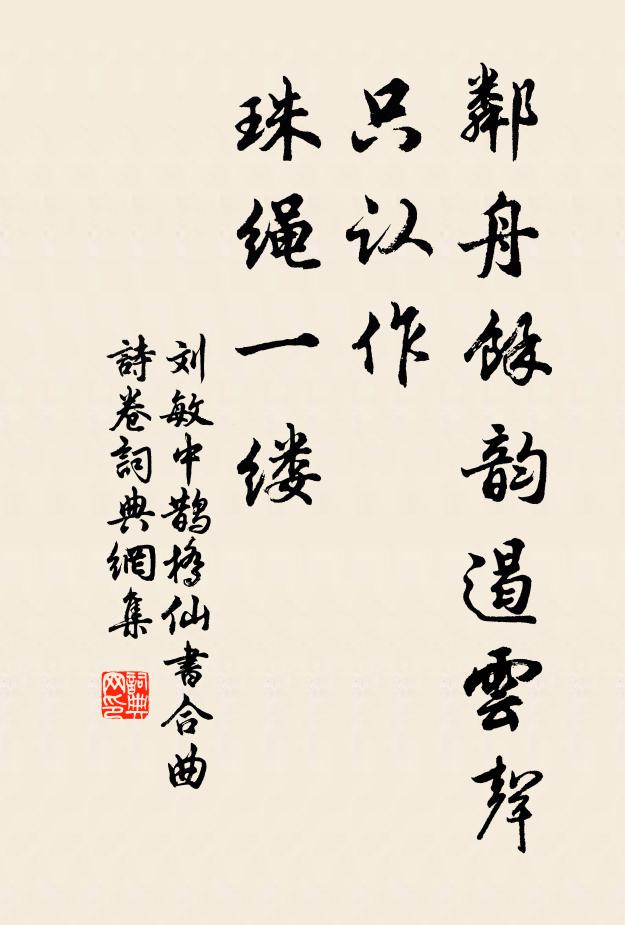 鄰舟餘韵遏雲聲
只认作
珠绳一缕
刘敏中鹊橋仙書合曲
詩卷詞典網集
詞典网印